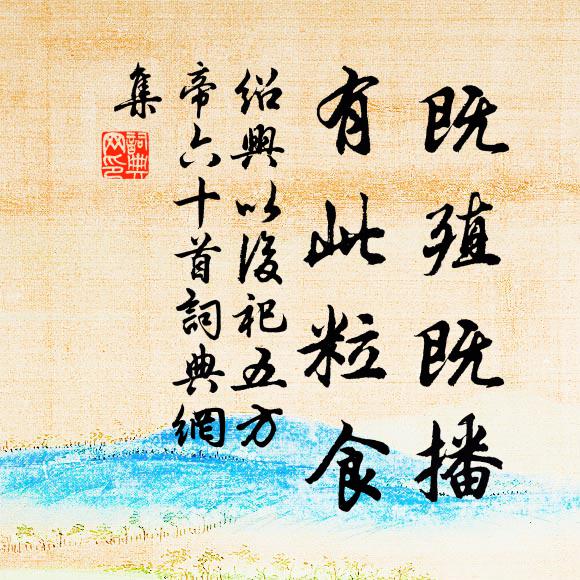 既殖既播
有此粒食
紹興以後祀五方
帝六十首詞典網
集
詞典
网印